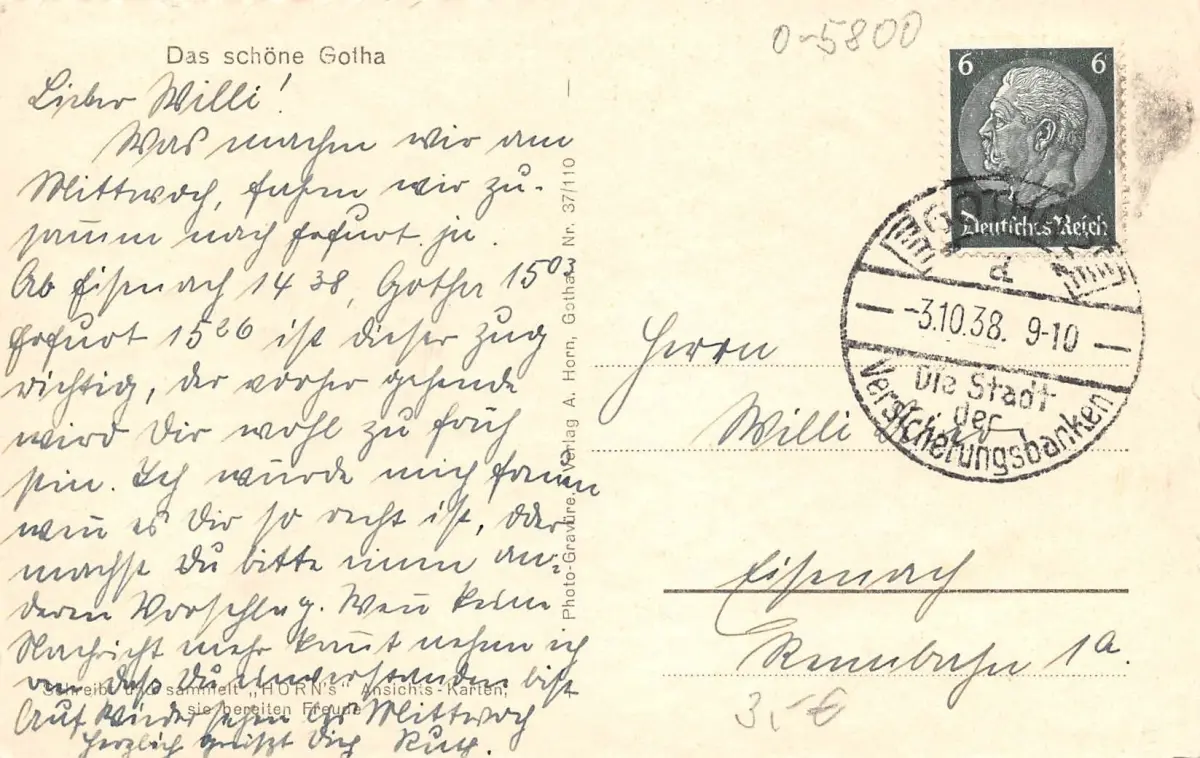 0-5800
Das schöne Gotha
Lieber Willi!
Was machen wir am
Mittwoch, fahren wir zu-
sammen nach Erfurt ja.
Ab Eisenach 14 38, Gotha 15 03
Erfurt 15 26 ist dieser Zug
richtig, der vorher gehende
wird Dir wohl zu früh
sein. Ich würde mich freuen
wenn es Dir so recht ist, oder
machst Du bitte einen an-
deren Vorschlag. Wenn keine
Nachricht mehr kommt nehme ich
an, daß Du einverstanden bist
Schreibt und sammelt „HORN's“ Ansichts-Karten,
sie bereiten Freude
Auf Wiedersehen Mittwoch
herzlich grüßt Dich Ruth.
Photo-Gravüre. Verlag A. Horn, Gotha. Nr. 37/110
6 6
Deutsches Reich
GOTHA
d
-3.10.38. 9-10
Die Stadt
der
Versicherungsbanken
Herrn
Willi
Eisenach
Rennbahn 1a.
3,- €